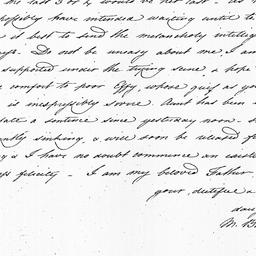 the last 3 or 4 would be her last - as
possibly have intended waiting until
it best to send the melancholy intellig
Do not be uneasy about me, I am
supported under the trying scene, & hope
comfort to poor Effy, whose grief as you
is inexpressibly severe. Aunt has been
a sentence since yesterday noon - s
sinking, & will soon be released f
& I have no doubt commence an
felicity - I am my beloved Father,
your dutiful &
dau
M. B